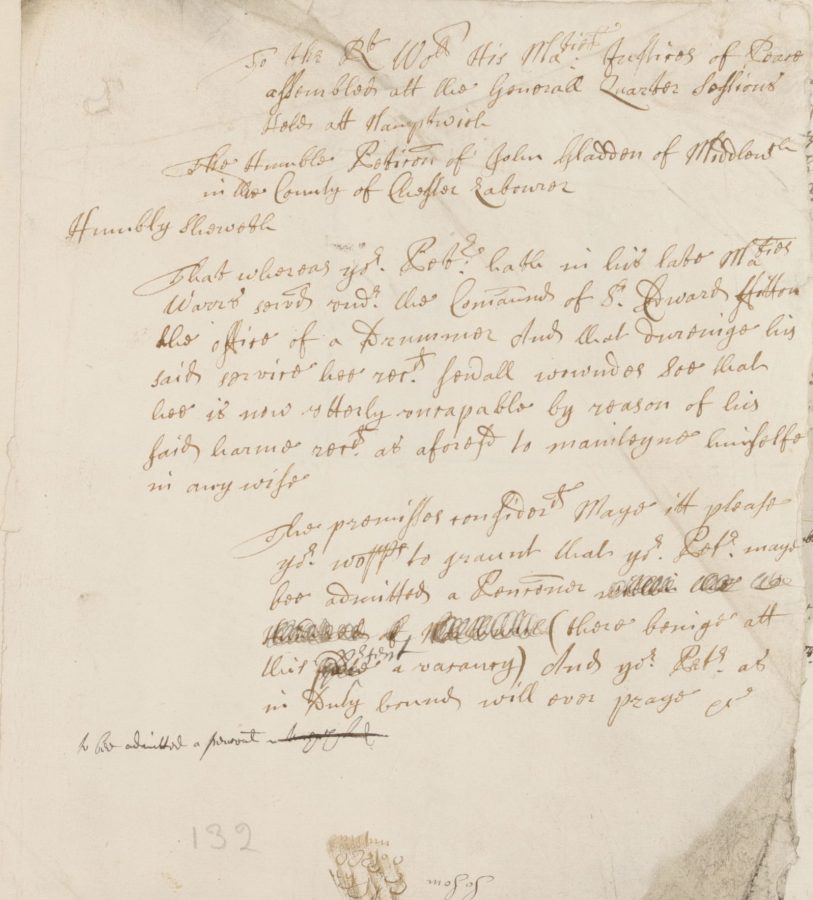 To the Rt Wor his Maties Justices of Peace
assembled att the Generall Quarter Sessions
held att Namptwich
The Humble Peticon of John Gladden of Middlewch
in the County of Chester Labourer
Humbly sheweth
That whereas yor Petr hath in his late Maties
Warrs servd undr the Comaund of Sr Edward ffitton
the office of a Drummer And that dureinge his
said service hee recd sevrall wowndes soe that
hee is now utterly uncapable by reason of his
said harme recd as aforesd to mainteyne himselfe
in any wise
The premisses considerd Maye itt please
yor worpps to graunt that yor Petr maye
bee admitted a Pencõner
(there beinge att
this prsent a vacancy) And yor Petr as
in Duty bound will ever praye &c
to bee admitted a
132